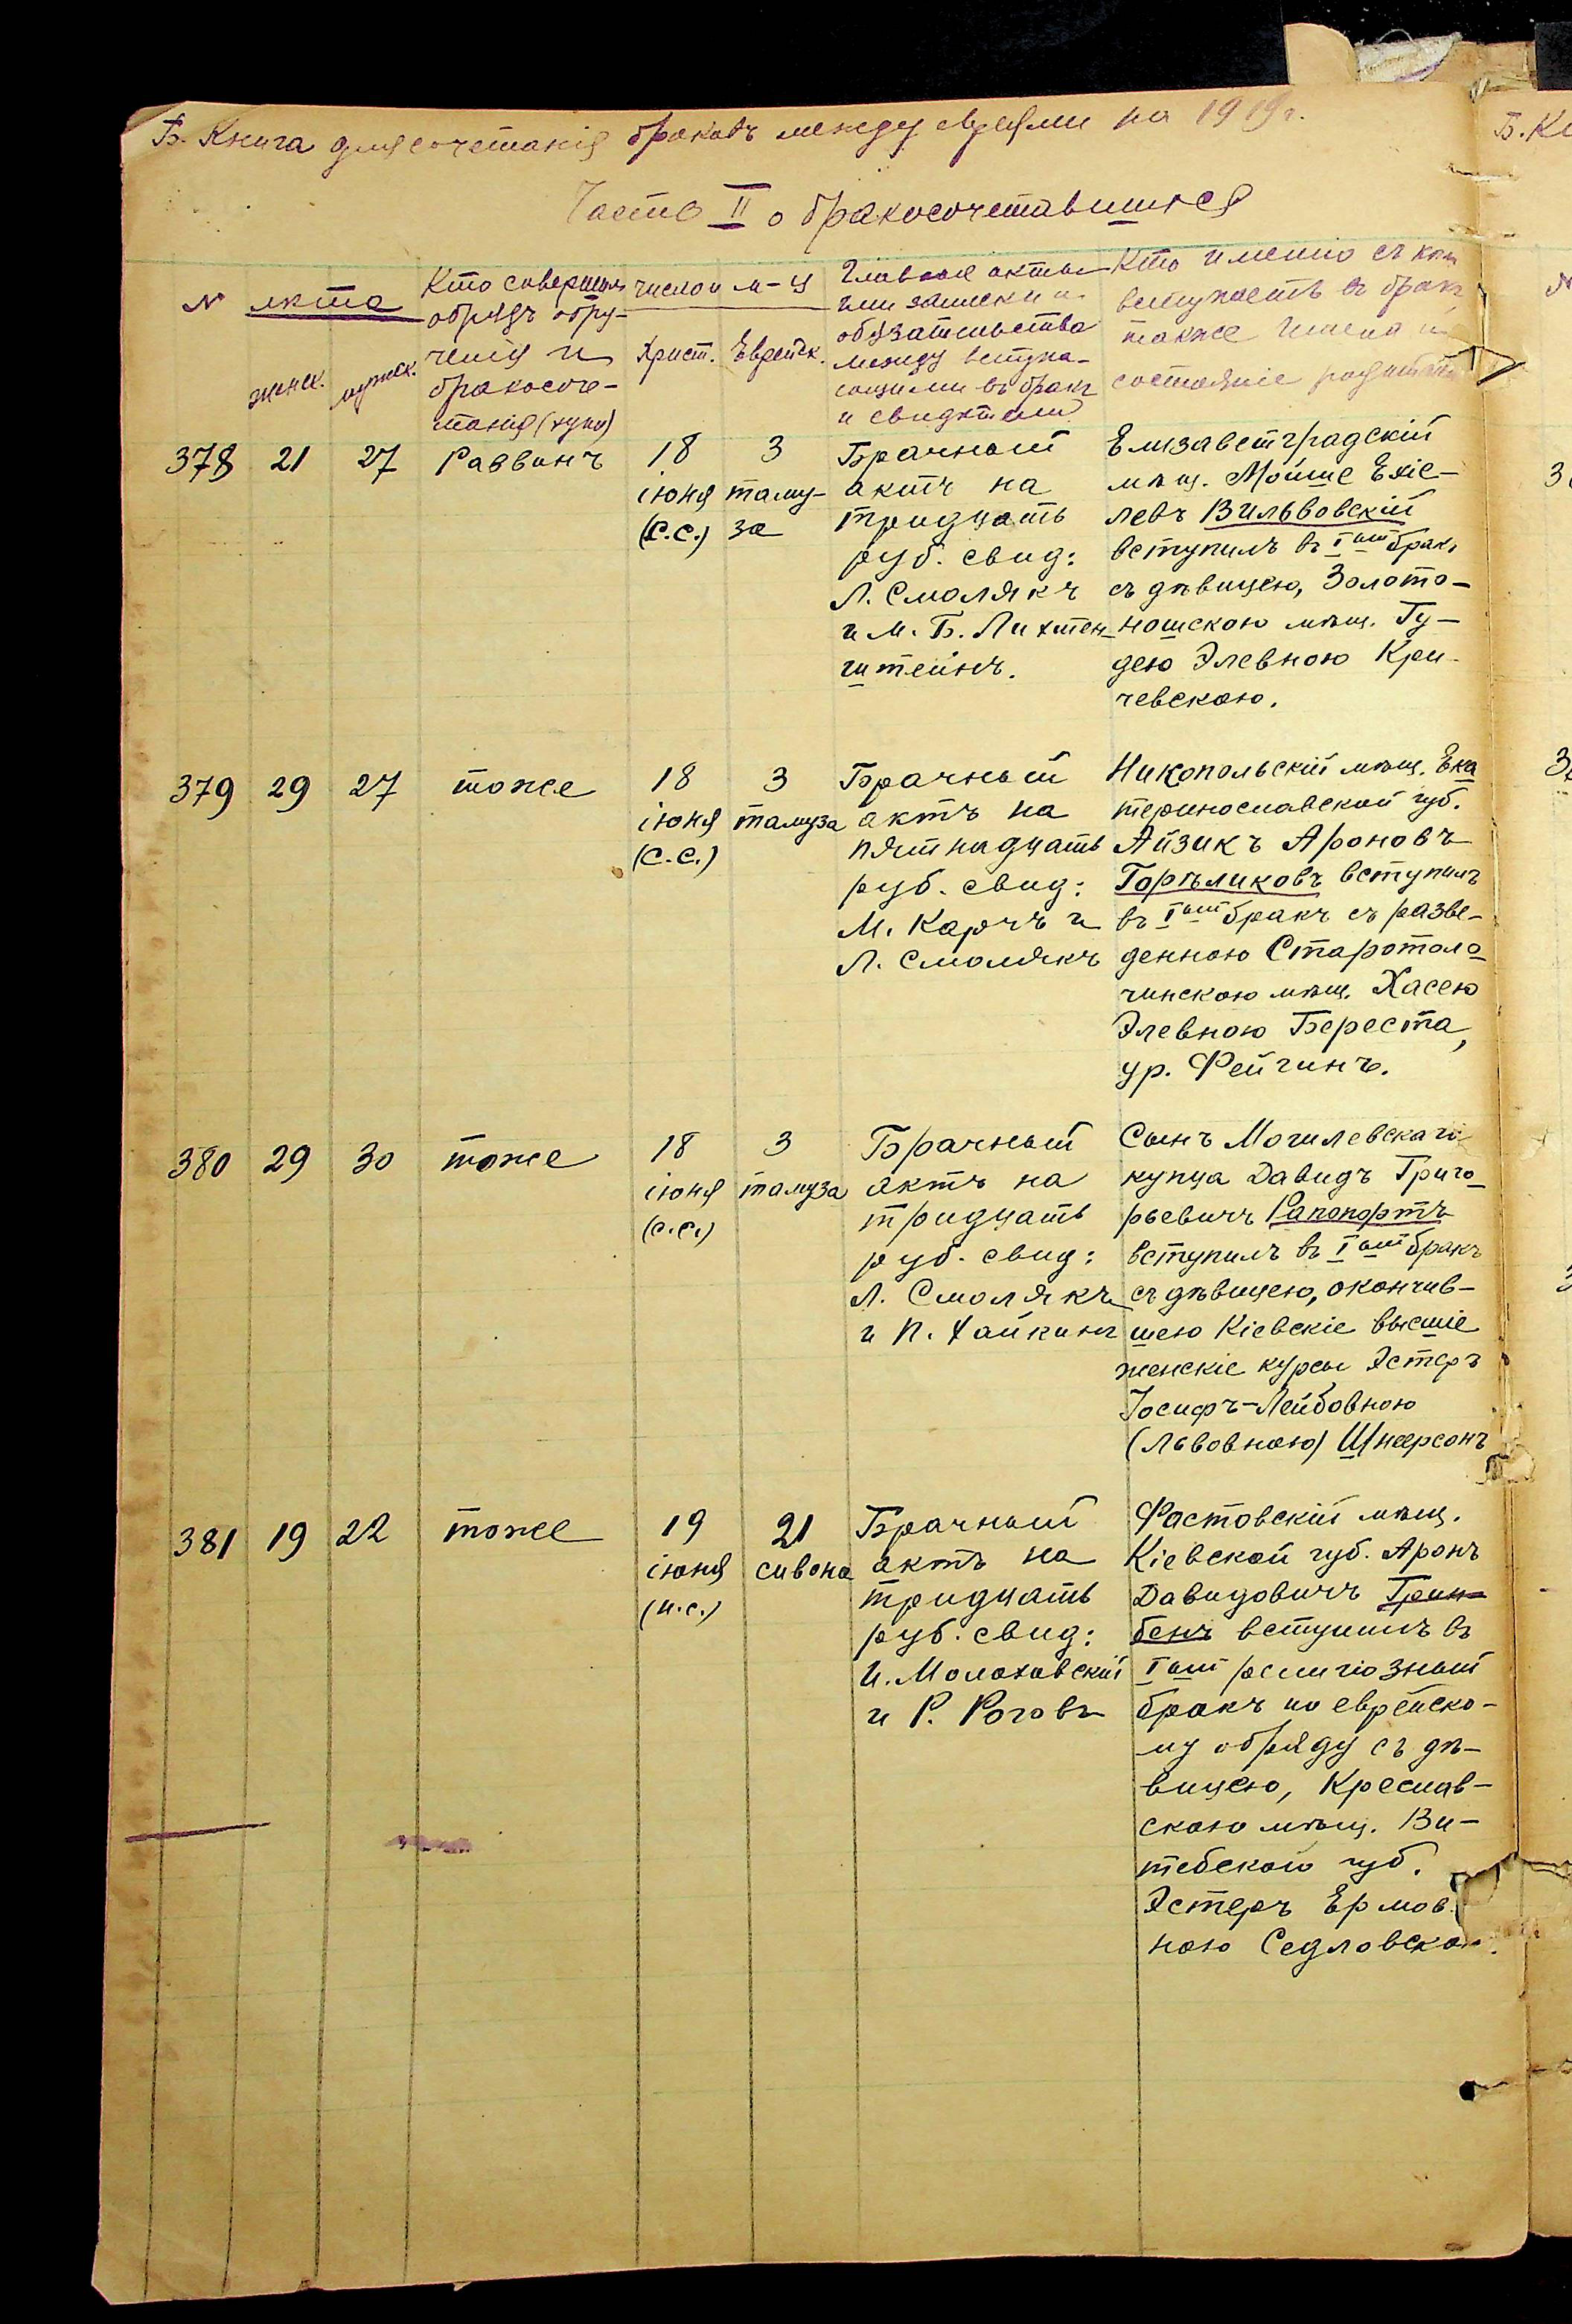 Б. Книга для сочетанія браковъ между евреями на 1919 г.
Часть II о бракосочетавшихся
№ лѣта женск. мужеск.
Кто совершалъ
обрядъ обру-
ченія и
бракосоче-
танія (хупы)
число и м-ц
Христ. Еврейск.
Главные акты
или записки и
обязательства
между вступа-
ющими въ бракъ
и свидѣтели
Кто именно съ кѣмъ
вступаетъ въ бракъ,
также имена и
состояніе родителей
378 21 27 Раввинъ
18
іюня
(с.с.)
3
таму-
за
Брачный
актъ на
тридцать
руб. свид:
Л. Смолякъ
и М. Б. Лихтен-
штейнъ.
Елизаветградскій
мѣщ. Мойше Ехіе-
левъ Вильвовскій
вступилъ въ Iый бракъ
съ дѣвицею, Золото-
ношскою мѣщ. Гу-
дею Элевною Кри-
чевскою.
379 29 27 тоже
18
іюня
(с.с.)
3
тамуза
Брачный
актъ на
пятнадцать
руб. свид:
М. Карчъ и
Л. Смолякъ
Никопольскій мѣщ. Ека
теринославской губ.
Айзикъ Ароновъ
Горѣликовъ вступилъ
въ Iый бракъ съ разве-
денною Старотоло
чинскою мѣщ. Хасею
Элевною Береста,
ур. Фейгинъ.
380 29 30 тоже
18
іюня
(с.с.)
3
тамуза
Брачный
актъ на
тридцать
руб. свид:
Л. Смолякъ
и П. Хайкинъ
Сынъ Могилевскаго
купца Давидъ Григо
рьевичъ Рапопортъ
вступилъ въ Iый бракъ
съ дѣвицею, окончив-
шею Кіевскіе высшіе
женскіе курсы Эстеръ
Іосифъ-Лейбовною
(Львовною) Шнеерсонъ
381 19 22 тоже
19
іюня
(н.с.)
21
сивона
Брачный
актъ на
тридцать
руб. свид:
И. Молоховскій
и Р. Роговъ
Фастовскій мѣщ.
Кіевской губ. Аронъ
Давидовичъ Грин-
бенъ вступилъ въ
Iый религіозный
бракъ по еврейско-
му обряду съ дѣ-
вицею, Креслав-
скою мѣщ. Ви-
тебской губ.
Эстеръ Ермов-
ною Седловскою.